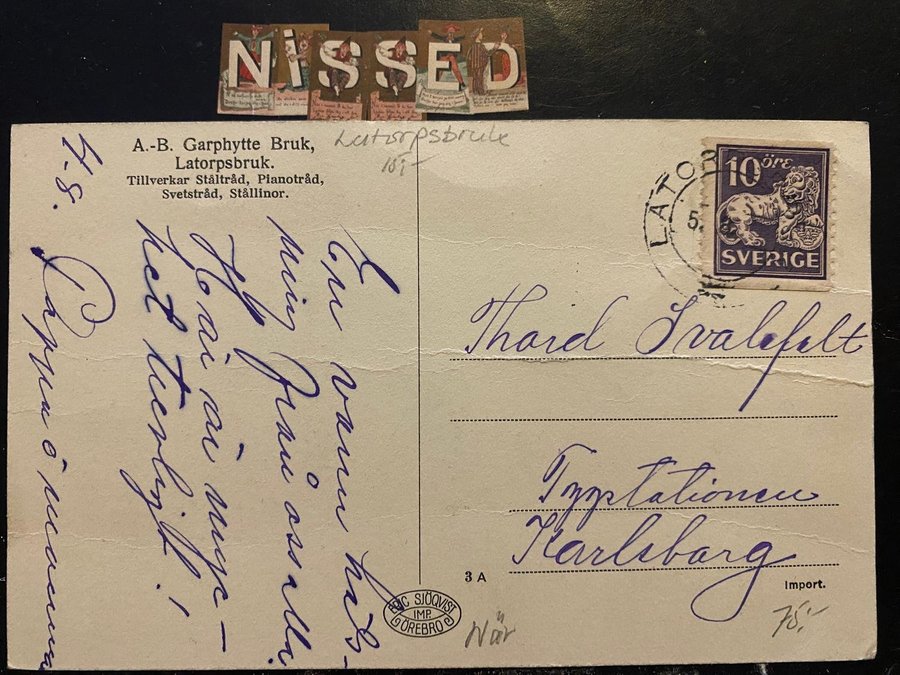 NiSSED
A.-B. Garphytte Bruk,
Latorpsbruk.
Tillverkar Ståltråd, Pianotråd,
Svetstråd, Stållinor.
Latorpsbruk
10:-
4-8.
En varm häls-
ning från oss alla.
Här är myc-
ket trevligt!
Pappa o mamma
LATOR
5.
10 öre
SVERIGE
Thord Svalefelt
Tygstationen
Karlsborg
3 A
Import.
ERIC SJÖQVIST
IMP.
ÖREBRO
När
75:-